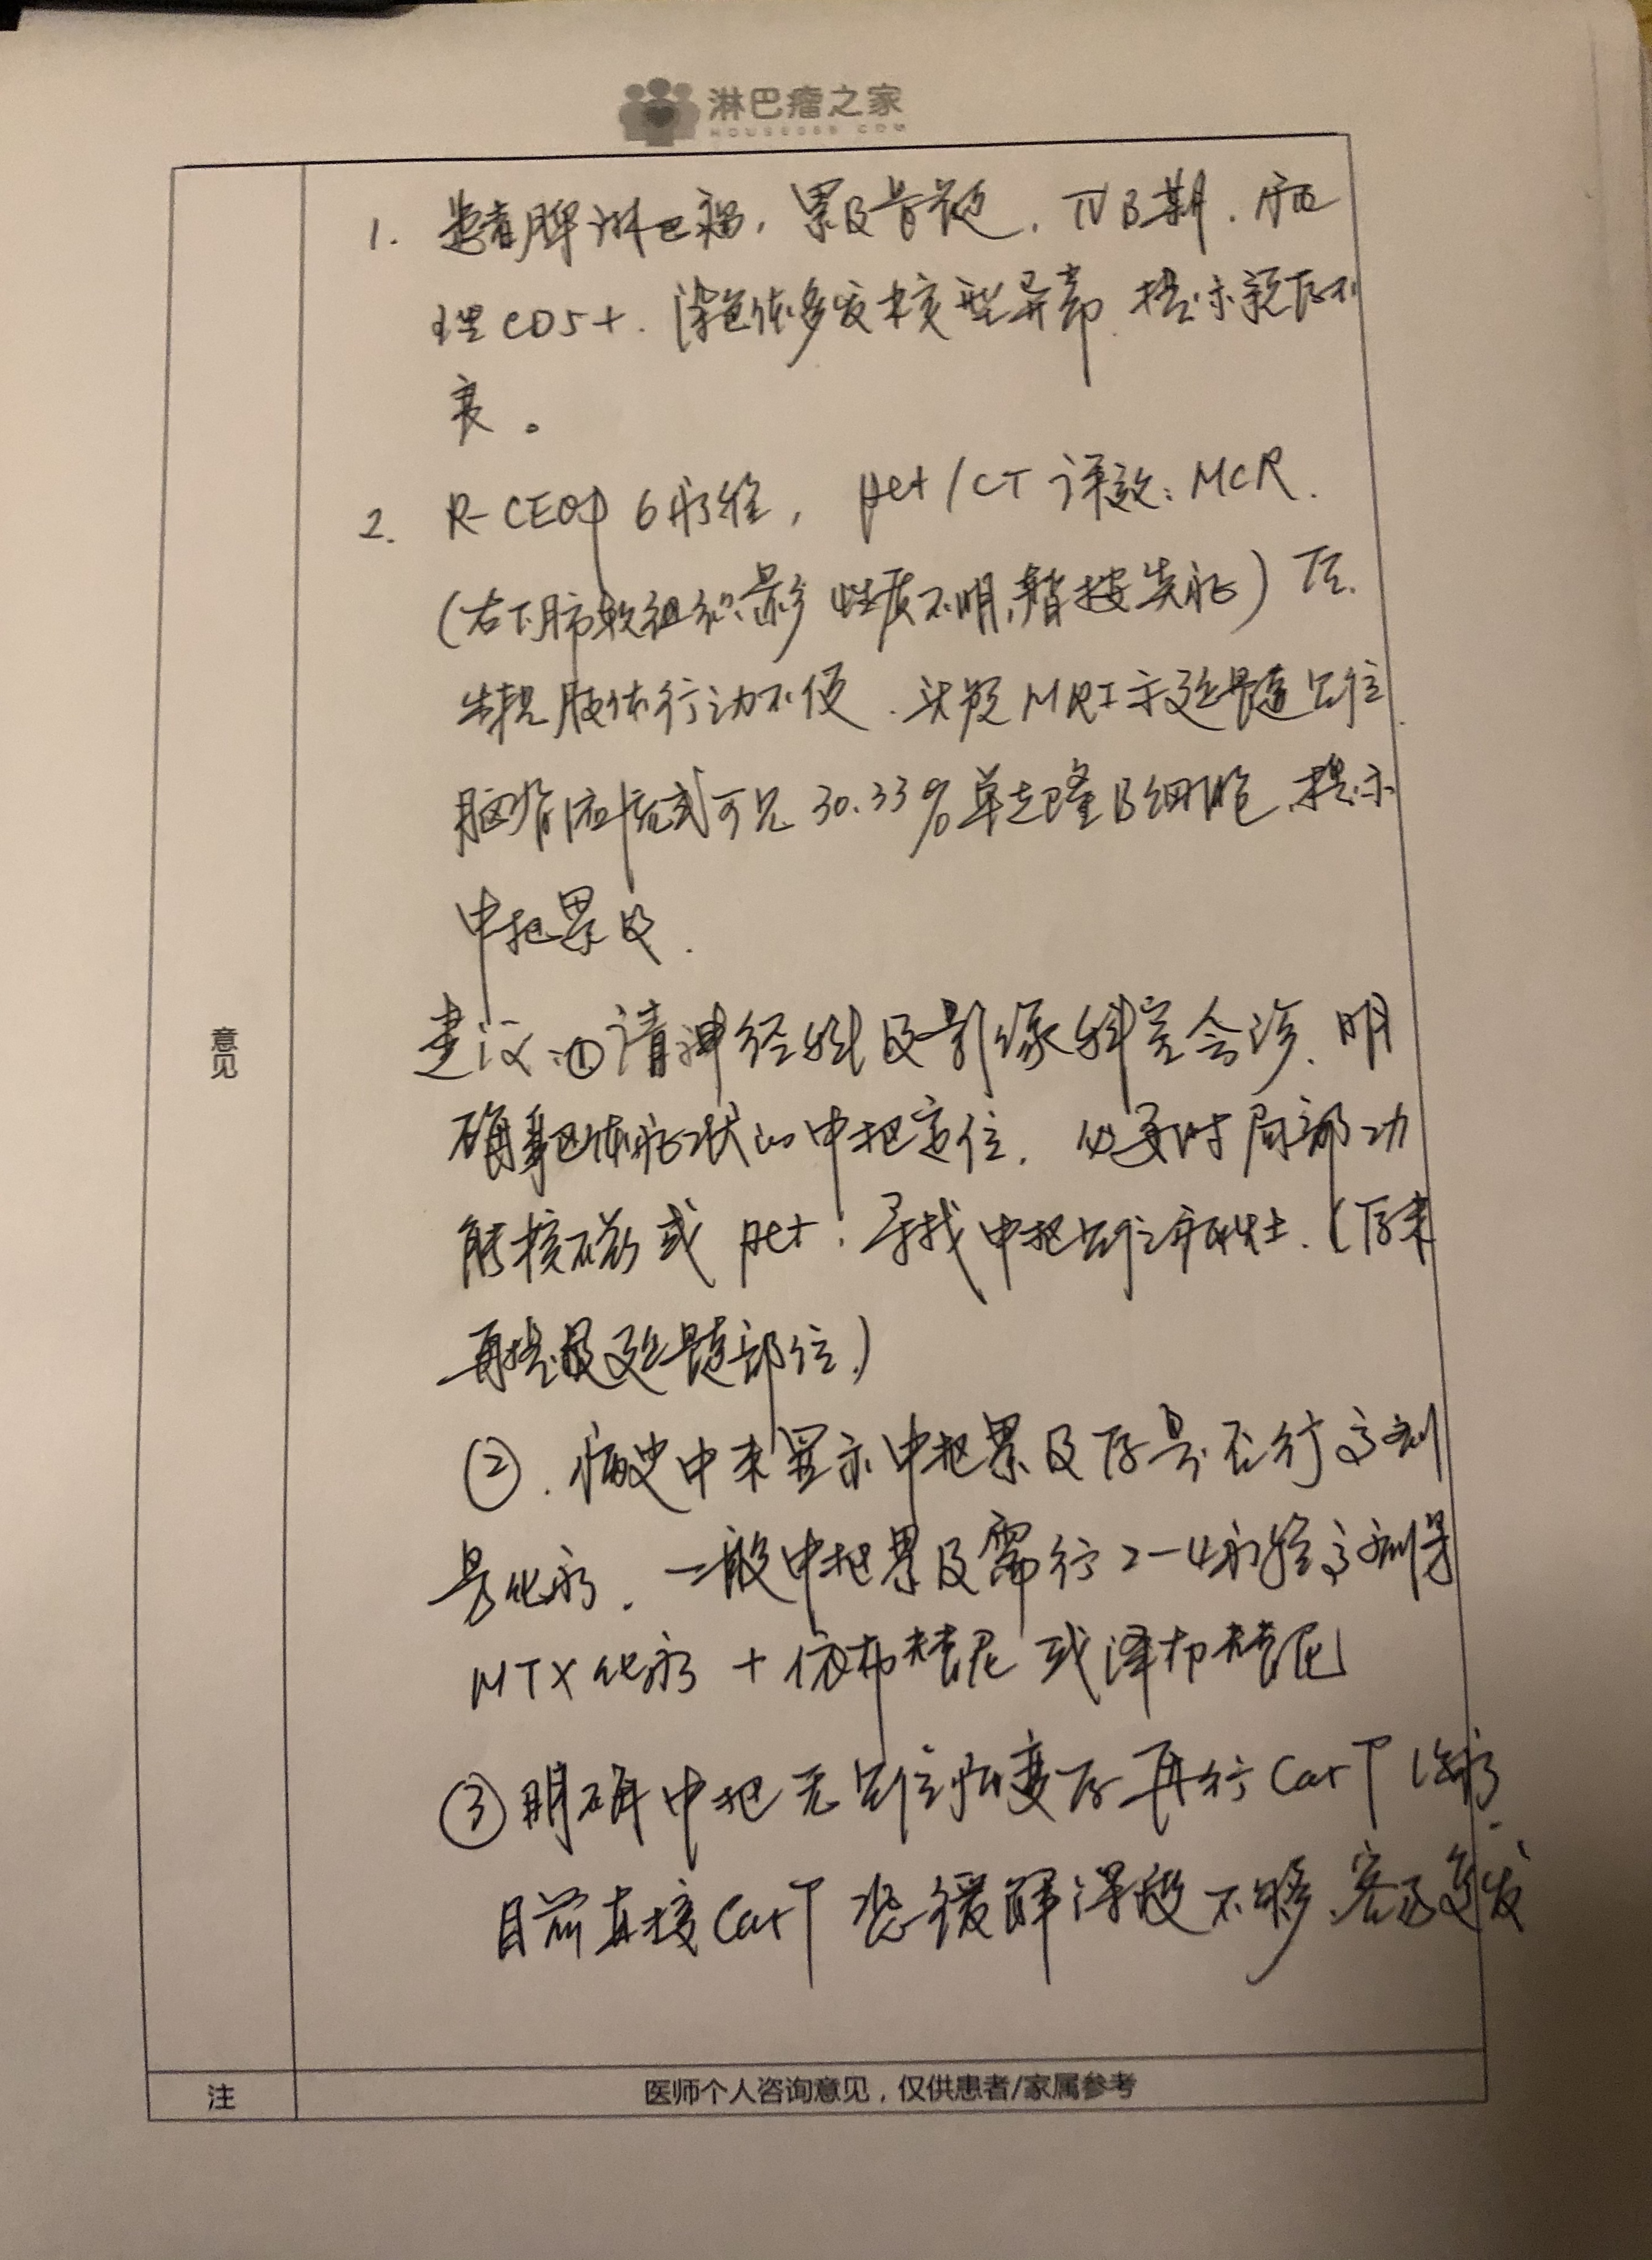 淋巴瘤之家
HOUSE086.COM
1. 患者脾淋巴瘤，累及骨髓，IVB期，病
理CD5+，染色体多发核型异常，提示预后不
良。
2. R-CEOP 6疗程，pet/CT评效：MCR.
(右下肺软组织影性质不明，暂按炎症) 后
出现肢体行动不便，头颅MRI示延髓占位
脑脊液流式可见30.33%单克隆B细胞，提示
中枢累及.
意见
建议：①请神经科及影像科室会诊，明
确肢体症状的中枢定位，必要时局部功
能核磁或pet，寻找中枢占位病灶.(后未
再提及延髓部位.)
②.病史中未显示中枢累及后是否行高剂
量化疗，一般中枢累及需行2-4疗程高剂量
MTX化疗+依布替尼或泽布替尼
③明确中枢无占位病变后再行CarT治疗.
目前直接CarT恐缓解深度不够，容易复发
注
医师个人咨询意见，仅供患者/家属参考